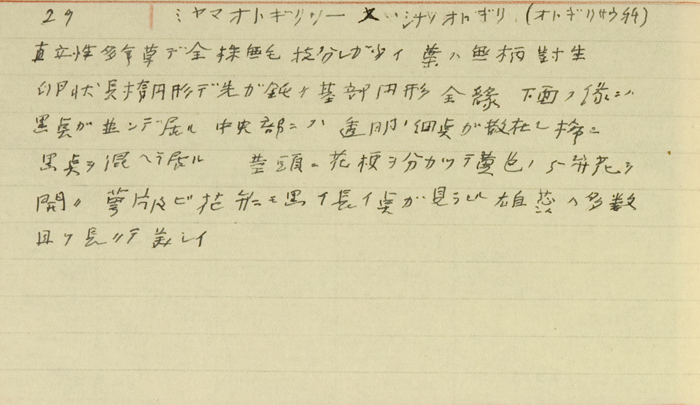 29 ミヤマオトギリソー 又ハシナノオトギリ (オトギリサウ科)
直立性多年草デ全株無毛 枝分レガ少イ 葉ハ無柄対生
卵状長楕円形デ先ガ鈍ク基部円形 全縁 下面ノ縁ニハ
黒点ガ並ンデ居ル 中央部ニハ透明ナ細点ガ散在シ稀ニ
黒点ヲ混ヘテ居ル 茎頭ニ花梗ヲ分カツテ黄色ノ五弁花ヲ
開ク 萼片及ビ花弁ニモ黒イ長イ点ガ見ラレル 雄蕊ハ多数
長クテ美シイ